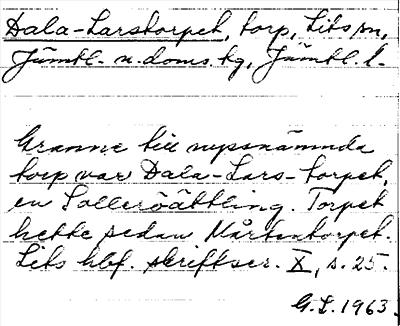 Dala-Larstorpet, torp, Lits sn,
Jämtl. n. doms. tg, Jämtl. l.
Granne till nyssnämnda
torp var Dala-Lars-torpet,
en Solleröättling. Torpet
hette sedan Mårtentorpet.
Lits hbf. skriftser. X, s. 25.
G.L. 1963.